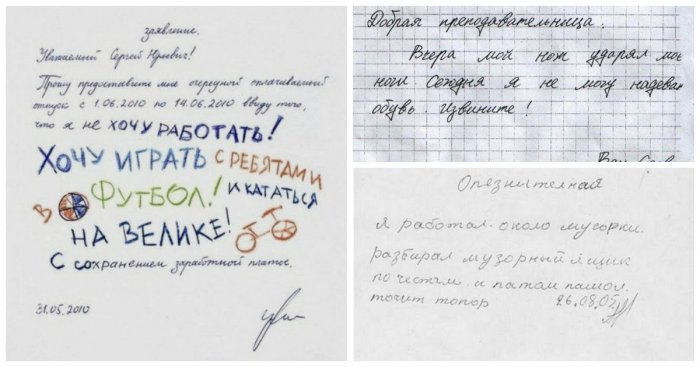 заявление.
Уважаемый Сергей Юрьевич!
Прошу предоставить мне очередной оплачиваемый
отпуск с 1.06.2010 по 14.06.2010 ввиду того,
что я не ХОЧУ РАБОТАТЬ!
ХОЧУ ИГРАТЬ С РЕБЯТАМИ
В ФУТБОЛ! И КАТАТЬСЯ
НА ВЕЛИКЕ!
С сохранением заработной платы.
31.05.2010
Добрая преподавательница.
Вчера мой нож ударял мое
ноги. Сегодня я не могу надеват
обувь. Извините!
Опезнителная
я работал около мусорки.
разбирал музорный ящик
по честям и патам пашол.
точит топор 26.08.05